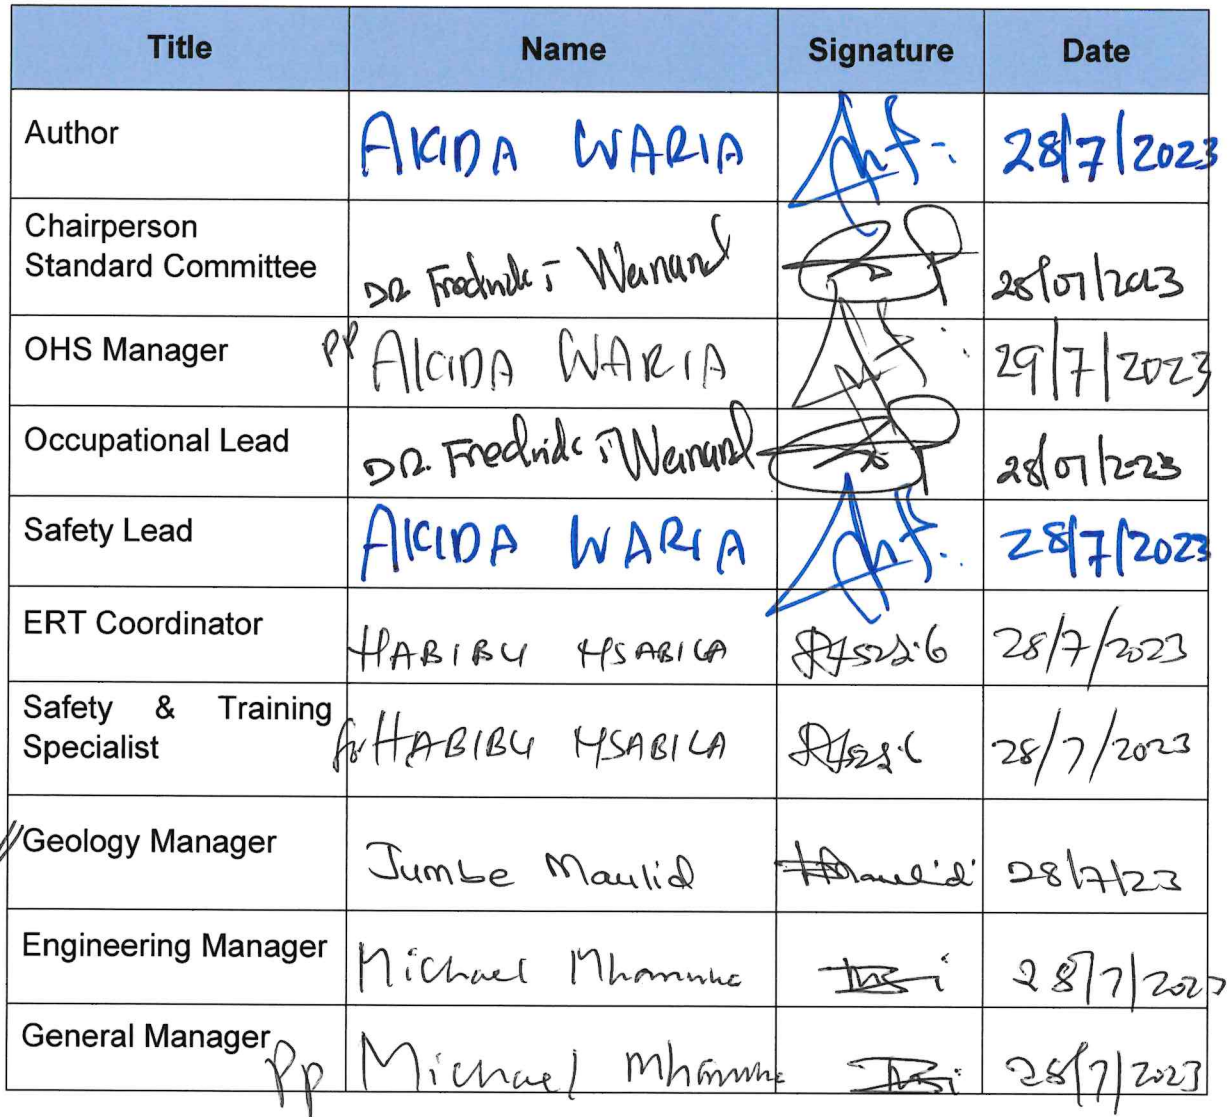 Title Name Signature Date
Author AKIDA WARIA 28/7/2023
Chairperson
Standard Committee DR Fredrick 28/07/2023
OHS Manager pp AKIDA WARIA 29/7/2023
Occupational Lead DR. Fredrick 28/07/2023
Safety Lead AKIDA WARIA 28/7/2023
ERT Coordinator HABIBU MSABILA 28/7/2023
Safety & Training
Specialist for HABIBU MSABILA 28/7/2023
Geology Manager Jumbe Maulid 28/7/23
Engineering Manager Michael 28/7/2023
General Manager pp Michael 28/7/2023